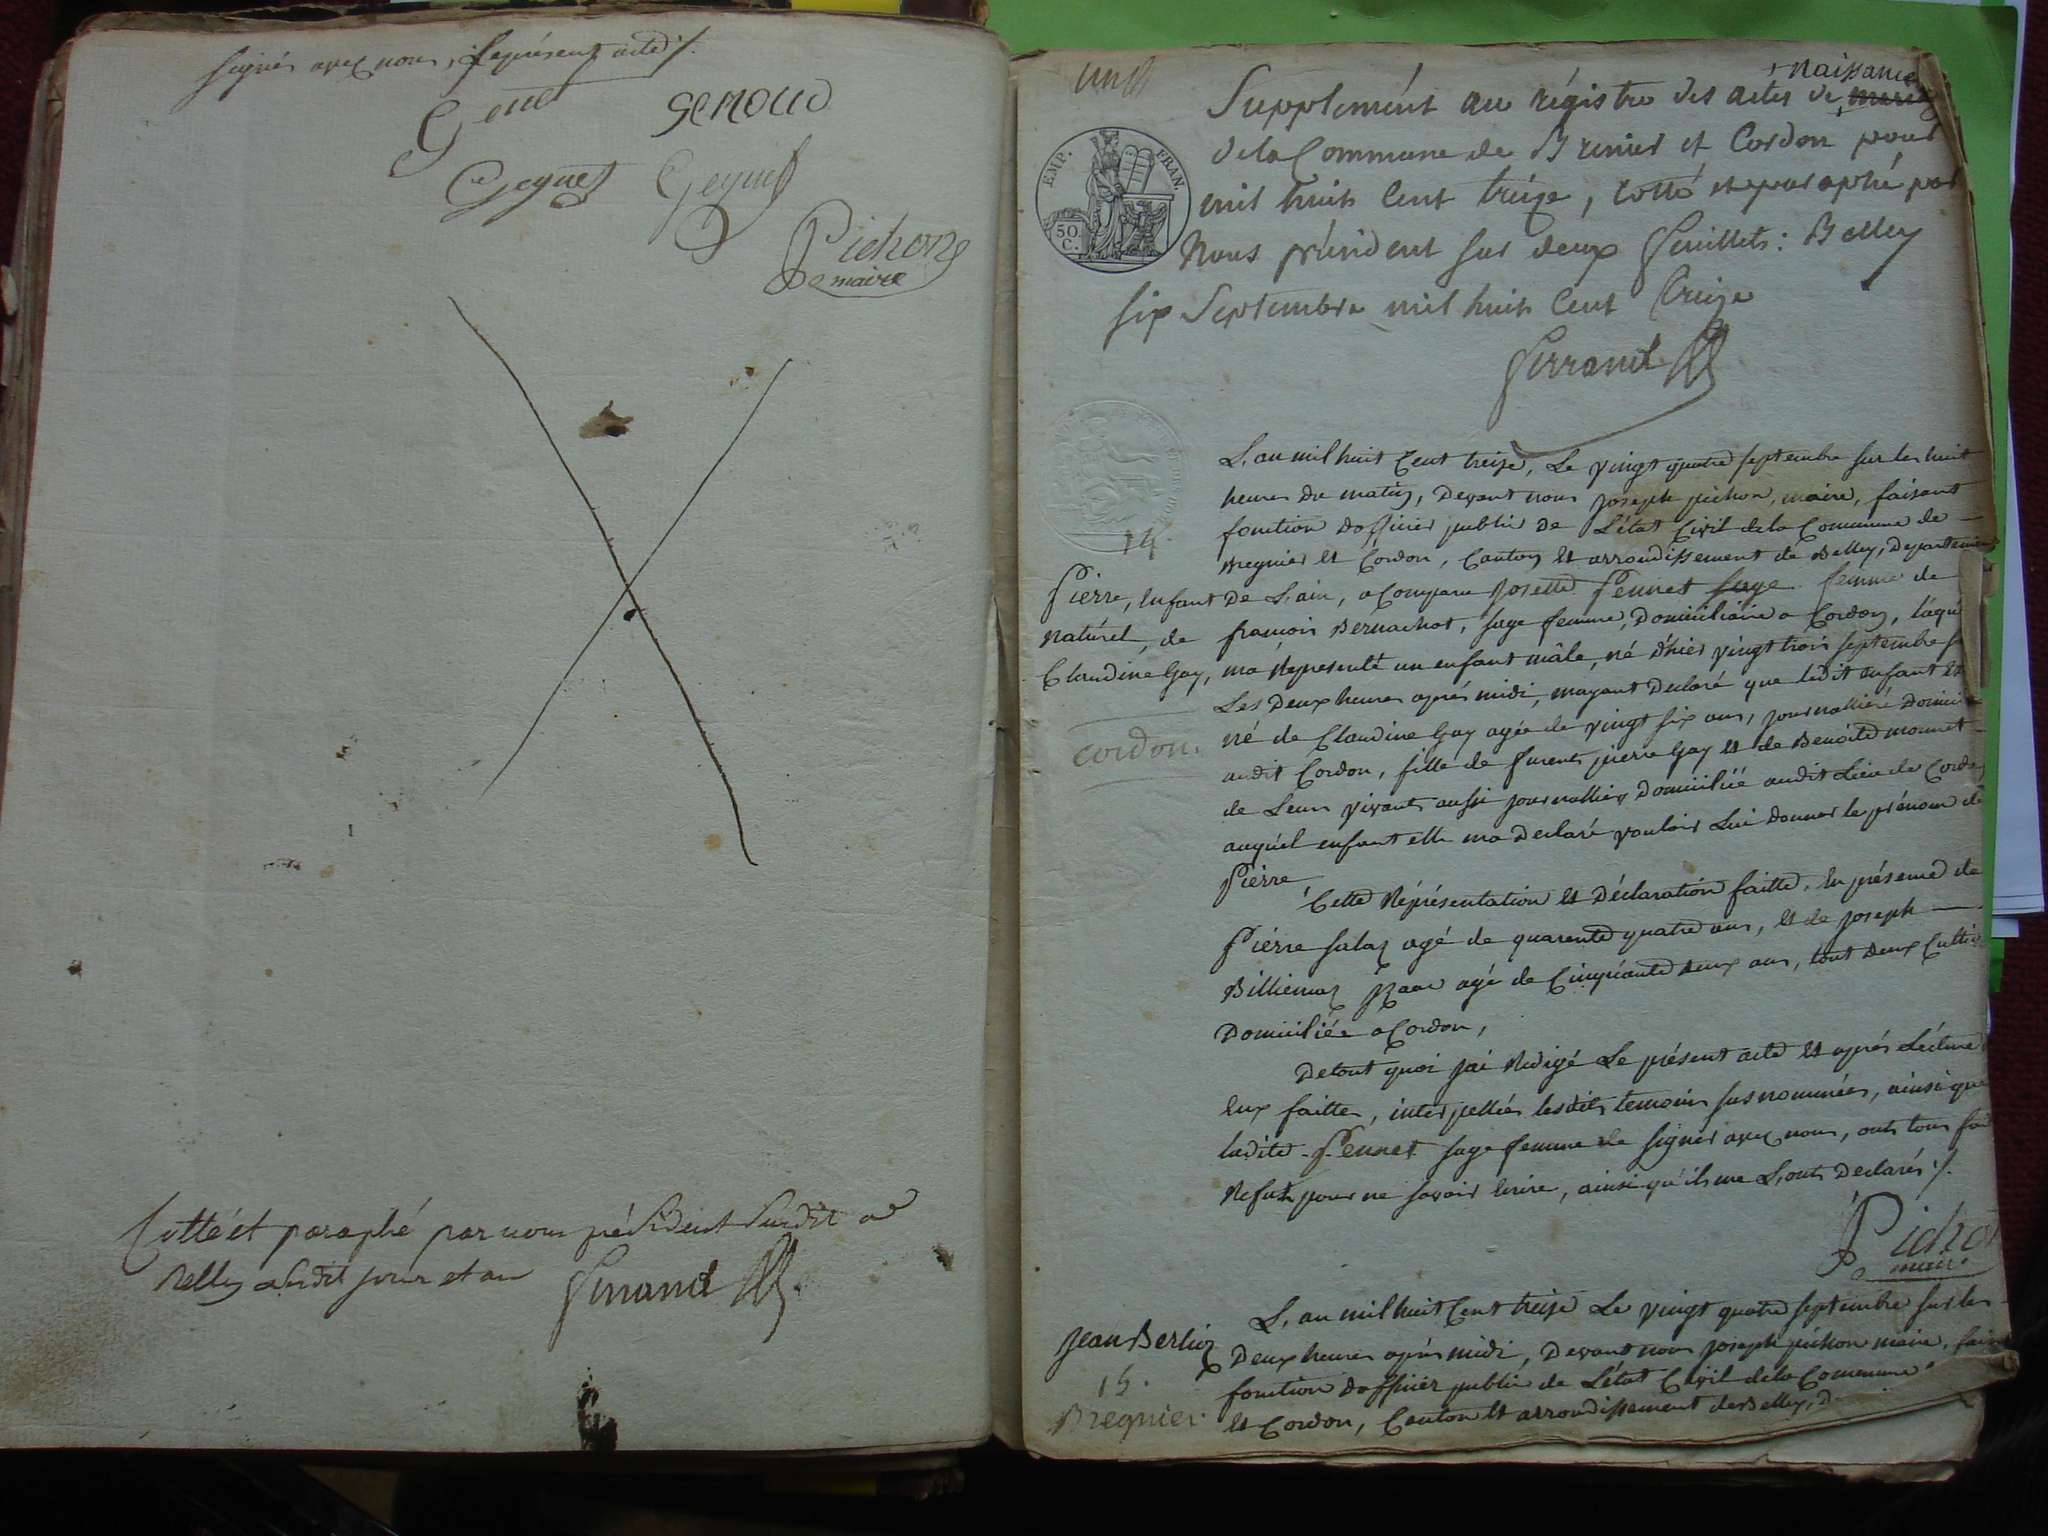 signés avec nous, le présent acte ./.
Genet GENOUD
Gegnet Gegnet
Pichon
maire
Cotté et paraphé par nous président susdit a
Belley lesdit jour et an Girrand
+ naissance
Supplément au régistre des actes de
de la Commune de Brenier et Cordon pour
mil huit Cent treize, cotté et paraphé par
Nous président sur deux feuillets : Belley
six Septembre mil huit Cent treize
Girrand
EMP. FRAN.
50. C.
L'an mil huit Cent treize, Le vingt quatre septembre sur les huit
heures du matin, Devant nous Joseph pichon, maire, faisant
fonction d'officier public de L'état Civil de la Commune de
14.
Bregnier et Cordon, Canton et arrondissement de Belley, Departement
Pierre, Enfant De L'ain, a Comparu Josette Pennet sage femme de
Naturel, de françois Bernachot, sage femme, Domiciliaire a Cordon, laqu
Claudine Gay, ma Représenté un enfant mâle, né d'hier vingt trois septembre s
Les Deux heures aprés midi, mayant Declaré que ledit enfant est
né de Claudine Gay agée de vingt six ans, journalliére Domici
cordon.
audit Cordon, fille de furent pierre Gay et de Benoite monnet
de Leur vivant aussi journallier Domiciliée audit Lieu de Cordon
auquel enfant elle ma Declaré vouloir Lui donner le prénom de
Pierre
Cette Réprésentation et Déclaration faitte, En présence de
Piérre salaz agé de quarente quatre ans, et de joseph
Billiemaz agé de Cinquante deux ans, tout deux Cultiv
Domiciliés a Cordon,
De tout quoi jai Redigé Le présent acte et aprés Lécture
Eux faitte, interpellés lesdits temoins susnommées, ainsi que
ladite Pennet sage femme de signer avec nous, onts tous fai
Refus pour ne savoir écrire, ainsi qu'ils me L'onts Declarés ./.
Pichon
maire
L'an mil huit Cent treize Le vingt quatre septembre sur les
Jean Berlioz
Deux heures aprés midi, Devant nous Joseph pichon maire, faisa
15.
fonction d'officier public de L'état Civil de la Commune
Bregnier.
et Cordon, Canton et arrondissement de Belley, D